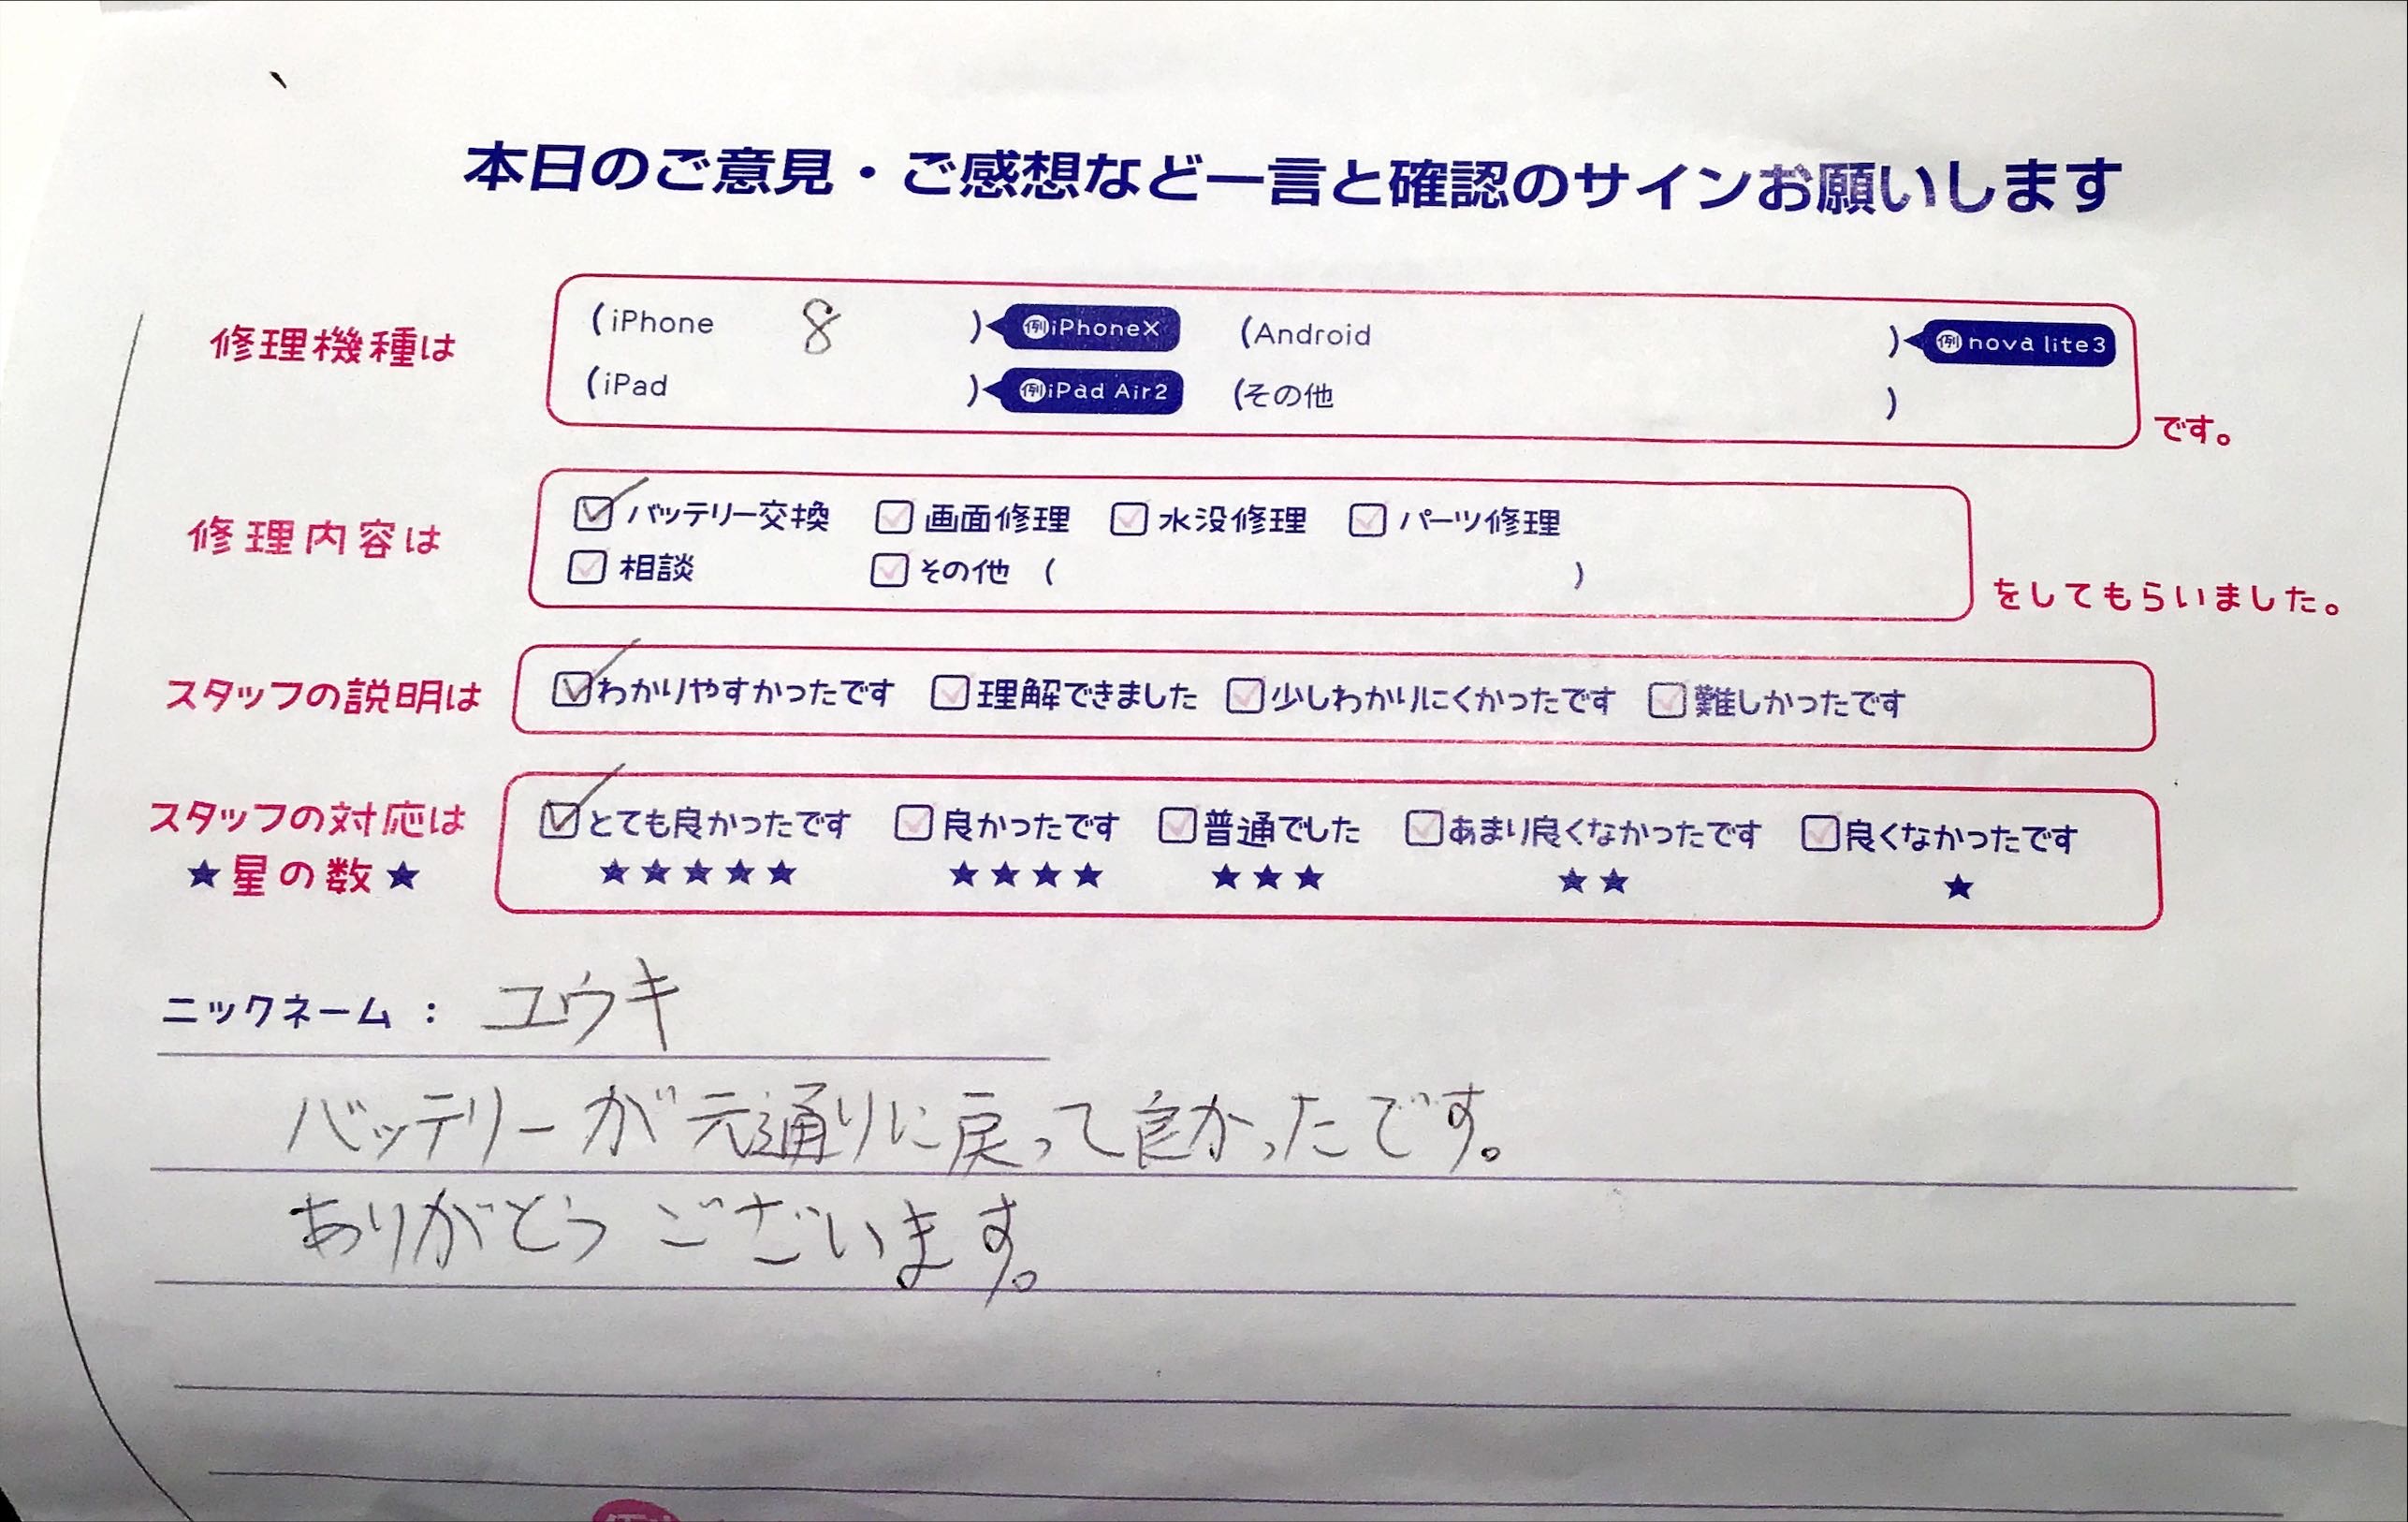 本日のご意見・ご感想など一言と確認のサインお願いします
修理機種は (iPhone 8 ) 例iPhoneX (Android ) 例nova lite3
(iPad ) 例iPad Air2 (その他 ) です。
修理内容は ☑バッテリー交換 □画面修理 □水没修理 □パーツ修理
□相談 □その他 ( ) をしてもらいました。
スタッフの説明は ☑わかりやすかったです □理解できました □少しわかりにくかったです □難しかったです
スタッフの対応は ☑とても良かったです □良かったです □普通でした □あまり良くなかったです □良くなかったです
★星の数★ ★★★★★ ★★★★ ★★★ ★★ ★
ニックネーム : ユウキ
バッテリーが元通りに戻って良かったです。
ありがとうございます。